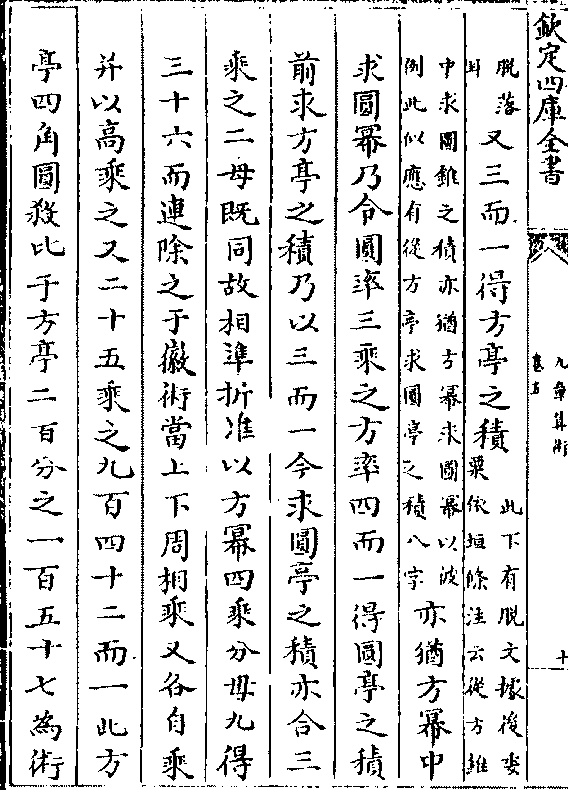 欽定四庫全書
九章算術
卷五
十
脱落
耳
又三而一得方亭之積
此下有脱文據後委
粟依垣條注云從方錐
中求圓錐之積亦猶方冪求圓冪以彼
例此似應有從方亭求圓亭之積八字
亦猶方冪中
求圓冪乃令圓率三乘之方率四而一得圓亭之積
前求方亭之積乃以三而一今求圓亭之積亦合三
乘之二母既同故相準折准以方冪四乘分母九得
三十六而連除之于徽術當上下周相乘又各自乘
并以高乘之又二十五乘之九百四十二而一此方
亭四角圓殺比于方亭二百分之一百五十七為術